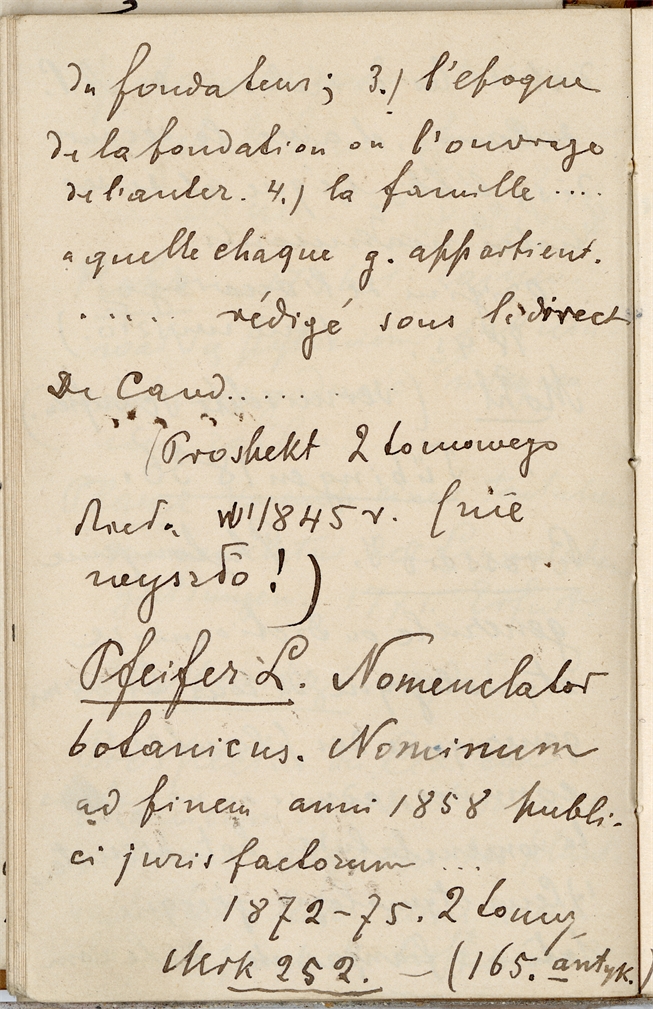 du fondateur; 3.) l'epoque
de la fondation ou l'ouvrage
de l'auter. 4.) la famille ....
a quelle chaque g. appartient.
..... rédigé sous la direct
De Cand......
(Proshekt 2 tomowego
dzieła w 1845 r. (nie
wyszło!)
Pfeifer L. Nomenclator
botanicus. Nominum
ad finem anni 1858 publi-
ci juris factorum ...
1872-75. 2 tomy
Mrk 252. – (165. antyk.)